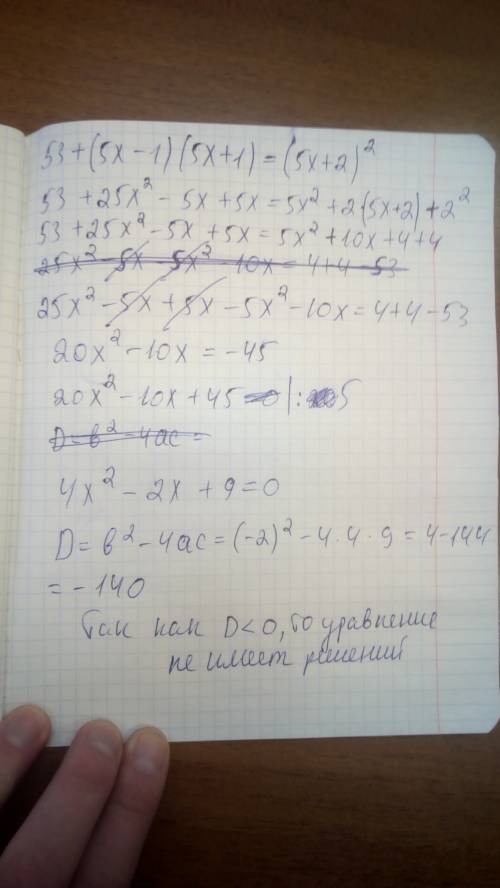 53+(5x-1)(5x+1)=(5x+2)²
53+25x²-5x+5x=5x²+2(5x+2)+2²
53+25x²-5x+5x=5x²+10x+4+4
25x²-5x-5x²-10x=4+4-53
25x²-5x+5x-5x²-10x=4+4-53
20x²-10x=-45
20x²-10x+45=0|:5
D=b²-4ac=
4x²-2x+9=0
D=b²-4ac=(-2)²-4·4·9=4-144
=-140
Так как D<0, то уравнение
не имеет решений